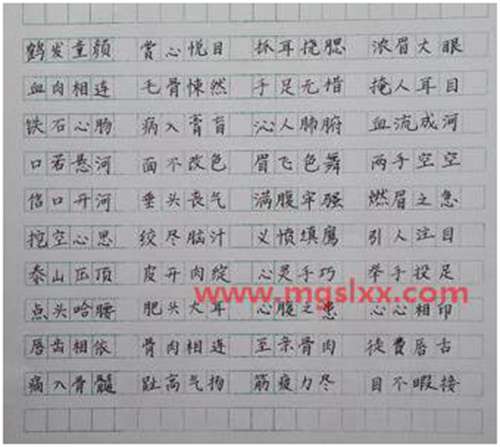 鹤发童颜 赏心悦目 抓耳挠腮 浓眉大眼
血肉相连 毛骨悚然 手足无措 掩人耳目
铁石心肠 病入膏肓 沁人肺腑 血流成河
口若悬河 面不改色 眉飞色舞 两手空空
信口开河 垂头丧气 满腹牢强 燃眉之急
挖空心思 绞尽脑汁 义愤填鹰 引人注目
泰山压顶 皮开肉绽 心灵手巧 举手投足
www.mgslxx.com
点头哈腰 肥头大耳 心腹之患 心心相印
唇齿相依 骨肉相连 至亲骨肉 徒费唇舌
痛入骨髓 趾高气扬 筋疲力尽 目不暇接